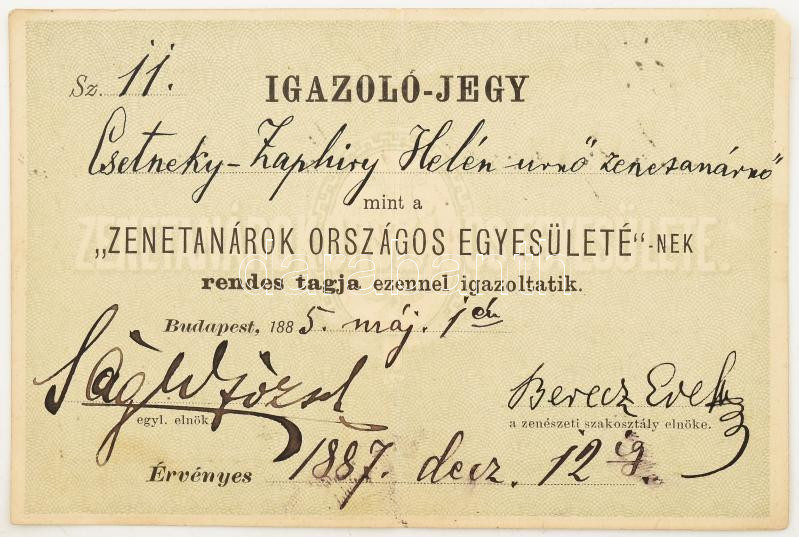 Sz. 11. IGAZOLÓ-JEGY
Csetneky-Zaphiry Helén urnő zenetanárnő
mint a
„ZENETANÁROK ORSZÁGOS EGYESÜLETÉ“-NEK
rendes tagja ezennel igazoltatik.
Budapest, 1885. máj. 1én
Ságh József
egyl. elnök.
Berecz Ede
a zenészeti szakosztály elnöke.
Érvényes 1887. decz. 12ig.